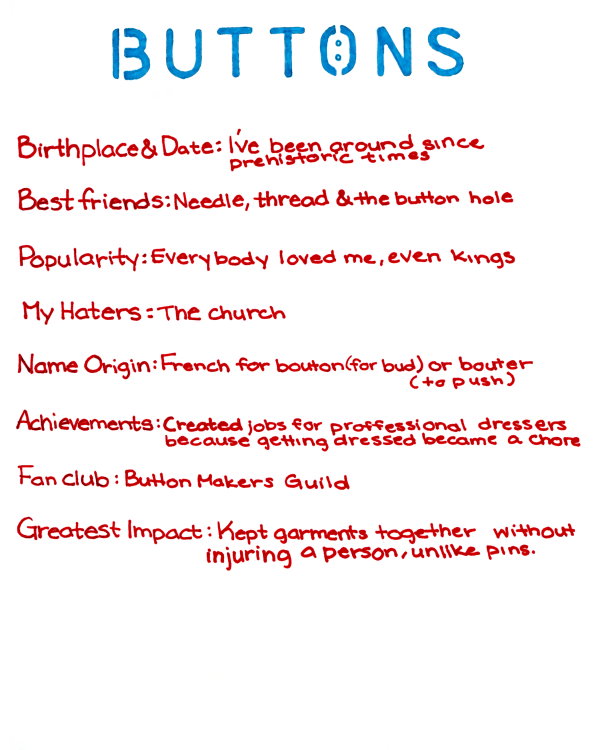 BUTTONS
Birthplace & Date: I've been around since
prehistoric times
Best friends: Needle, thread & the button hole
Popularity: Everybody loved me, even kings
My Haters: The church
Name Origin: French for bouton (for bud) or bouter
(to push)
Achievements: Created jobs for proffessional dressers
because getting dressed became a chore
Fan club: Button Makers Guild
Greatest Impact: Kept garments together without
injuring a person, unlike pins.